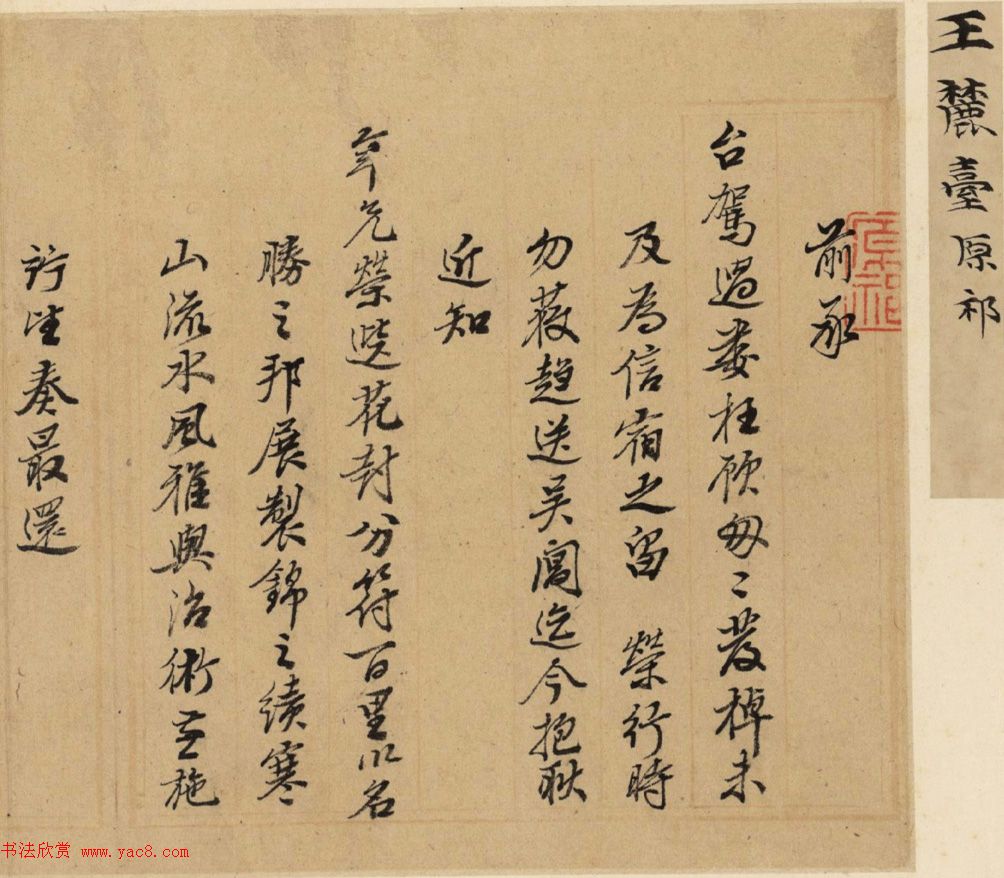 王麓臺原祁
前承
台駕過婁枉顧匆〻發棹未
及為信宿之留 榮行時
勿獲趨送吴閶迄今抱耿
近知
年兄榮遷花封分符百里以名
勝之邦展製錦之績寒
山流水風雅與治術並施
竚望奏最還
书法欣赏 www.yac8.com